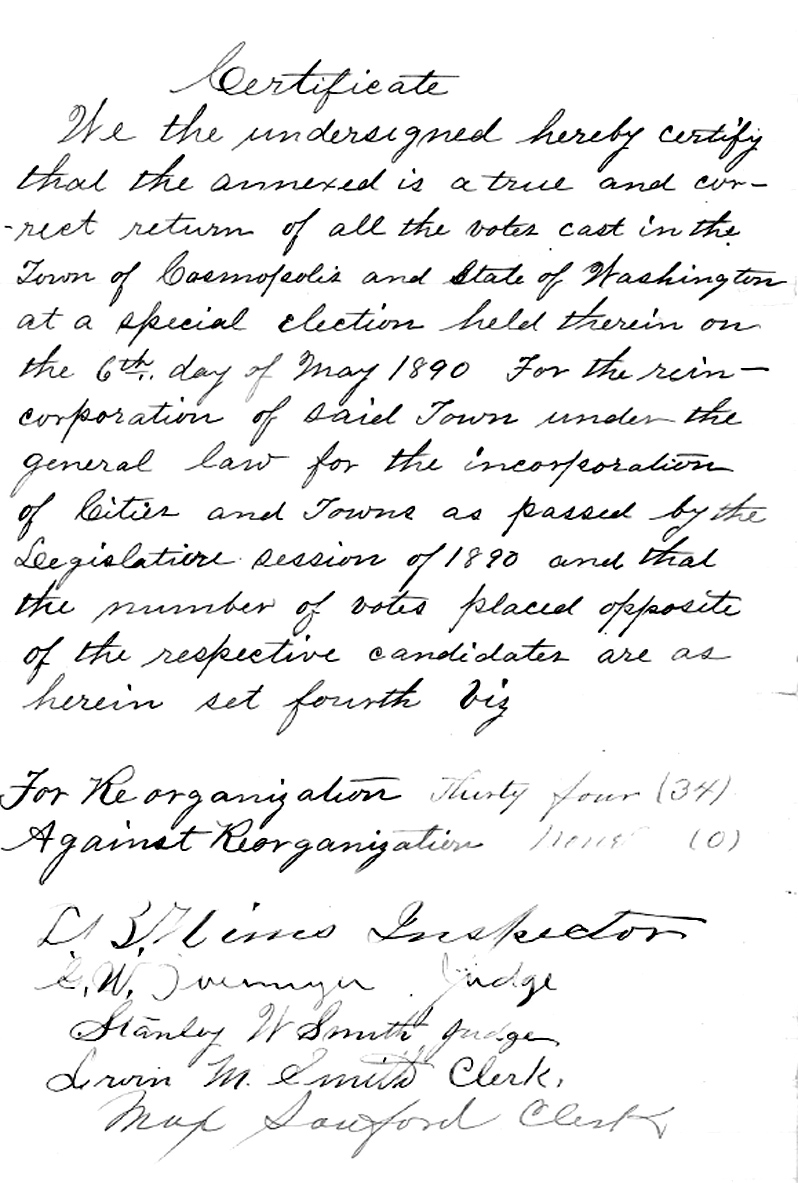 Certificate
We the undersigned hereby certify
that the annexed is a true and cor-
-rect return of all the votes cast in the
Town of Cosmopolis and State of Washington
at a special election held therein on
the 6th. day of May 1890 For the rein-
corporation of said Town under the
general law for the incorporation
of Cities and Towns as passed by the
Legislative session of 1890 and that
the number of votes placed opposite
of the respective candidates are as
herein set fourth Viz
For Reorganization Thirty four (34)
Against Reorganization None (0)
B. Nims Inspector
W. Judge
Stanley W Smith Judge
Irwin M. Smith Clerk.
Max Sanford Clerk